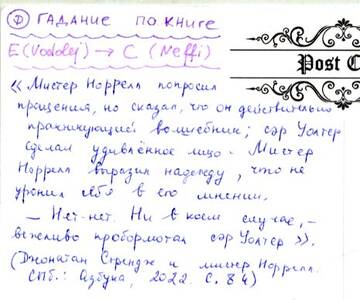 Ⓓ ГАДАНИЕ ПО КНИГЕ
E (Vodolej) → C (Neffi)
Post C
« Мистер Норрелл попросил
прощения, но сказал, что он действительно
практикующий волшебник; сэр Уолтер
сделал удивлённое лицо. Мистер
Норрелл выразил надежду, что не
уронил себя в его мнении.
— Нет-нет. Ни в коем случае, –
вежливо пробормотал сэр Уолтер ».
(Джонатан Стрендж и мистер Норрелл.
СПб.: Азбука, 2022. С. 84)